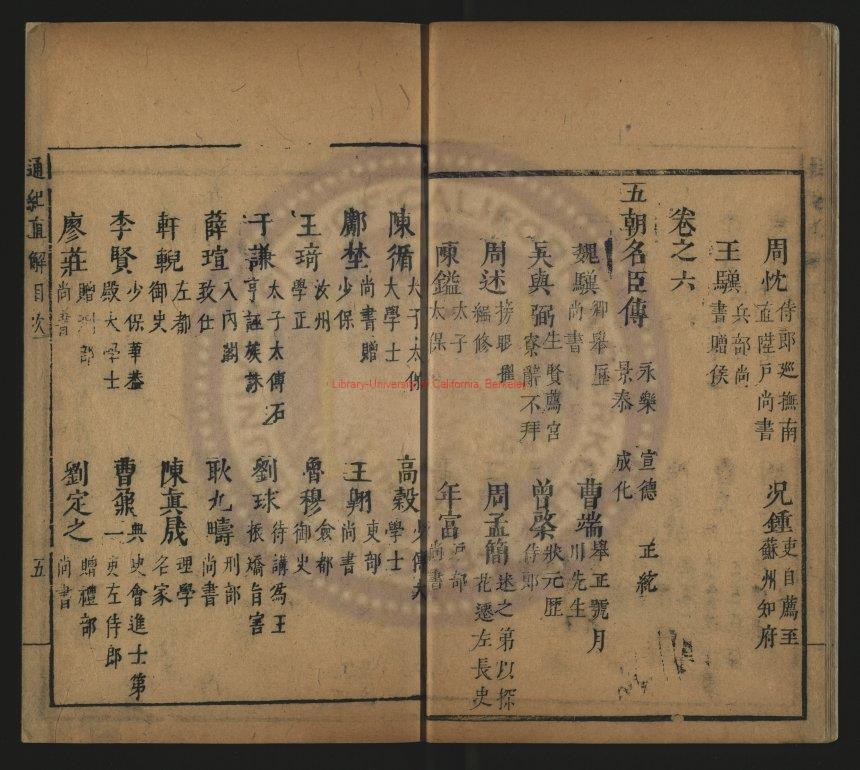 周忱 侍郎巡撫南直陞戶尚書
況鍾 吏自薦至蘇州知府
王驥 兵部尚書贈侯
卷之六
五朝名臣傳 永樂 宣德 正統 景泰 成化
魏驥 鄉舉歷尚書
曹端 舉正號月川先生
吳與弼 生賢薦宮寮辭不拜
曾棨 狀元歷侍郎
周述 榜眼擢編修
周孟簡 述之弟以探花遷左長史
陳鎰 太子太保
年富 戶部尚書
陳循 太子太保大學士
高穀 少傅大學士
鄺埜 尚書贈少保
王翱 吏部尚書
王琦 汝州學正
魯穆 僉都御史
于謙 太子太傅石亨誣族誅
劉球 侍講為王振矯旨害
薛瑄 入內閣致仕
耿九疇 刑部尚書
軒輗 左都御史
陳真晟 理學名家
李賢 少保華蓋殿大學士
曹鼐 典史會進士第一吏左侍郎
廖莊 贈部尚書
劉定之 贈禮部尚書
通紀直解目次
五
Library-University of California, Berkeley